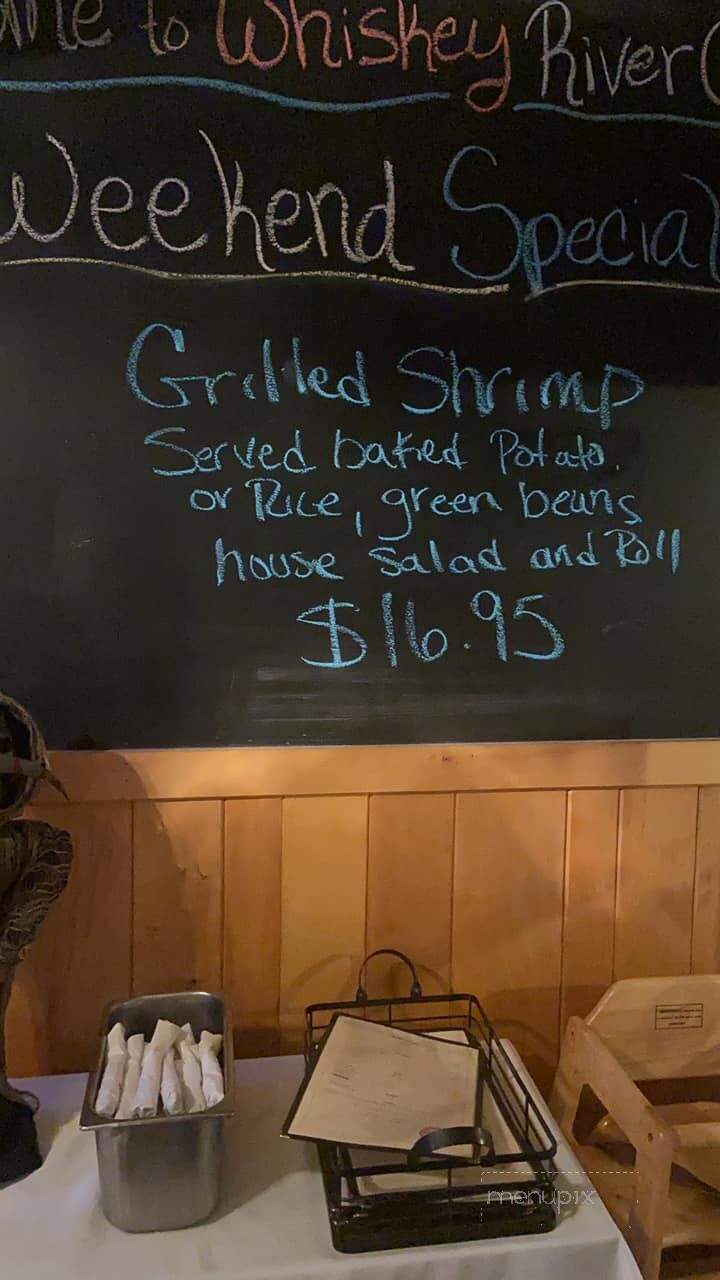 me to Whiskey River
Weekend Special
Grilled Shrimp
Served baked Potato.
or Rice, green beans
house salad and Roll
$16.95
menupix